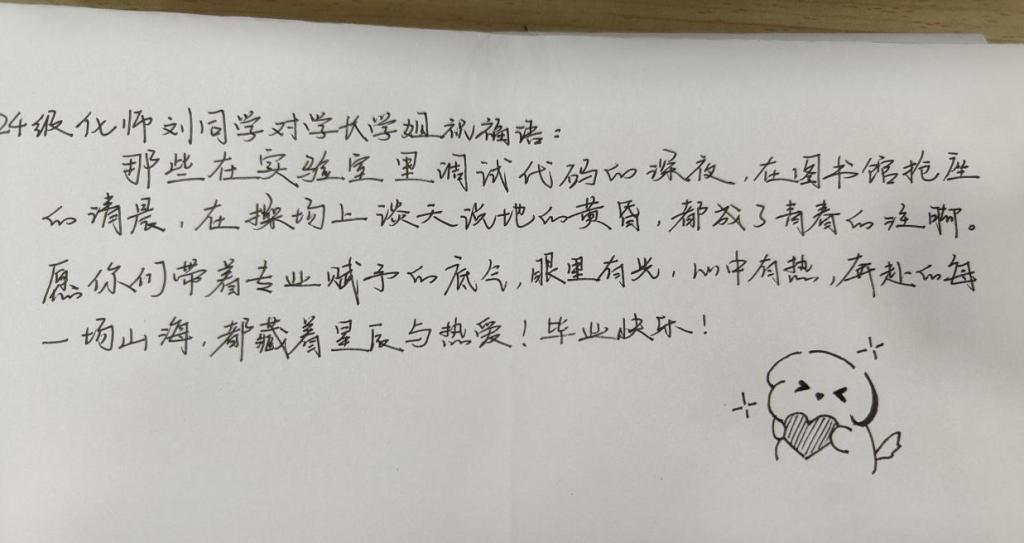 24级化师刘同学对学长学姐祝福语：
那些在实验室里调试代码的深夜，在图书馆抢座
的清晨，在操场上谈天说地的黄昏，都成了青春的注啊。
愿你们带着专业赋予的底气，眼里有光，心中有热，奔赴的每
一场山海，都藏着星辰与热爱！毕业快乐！